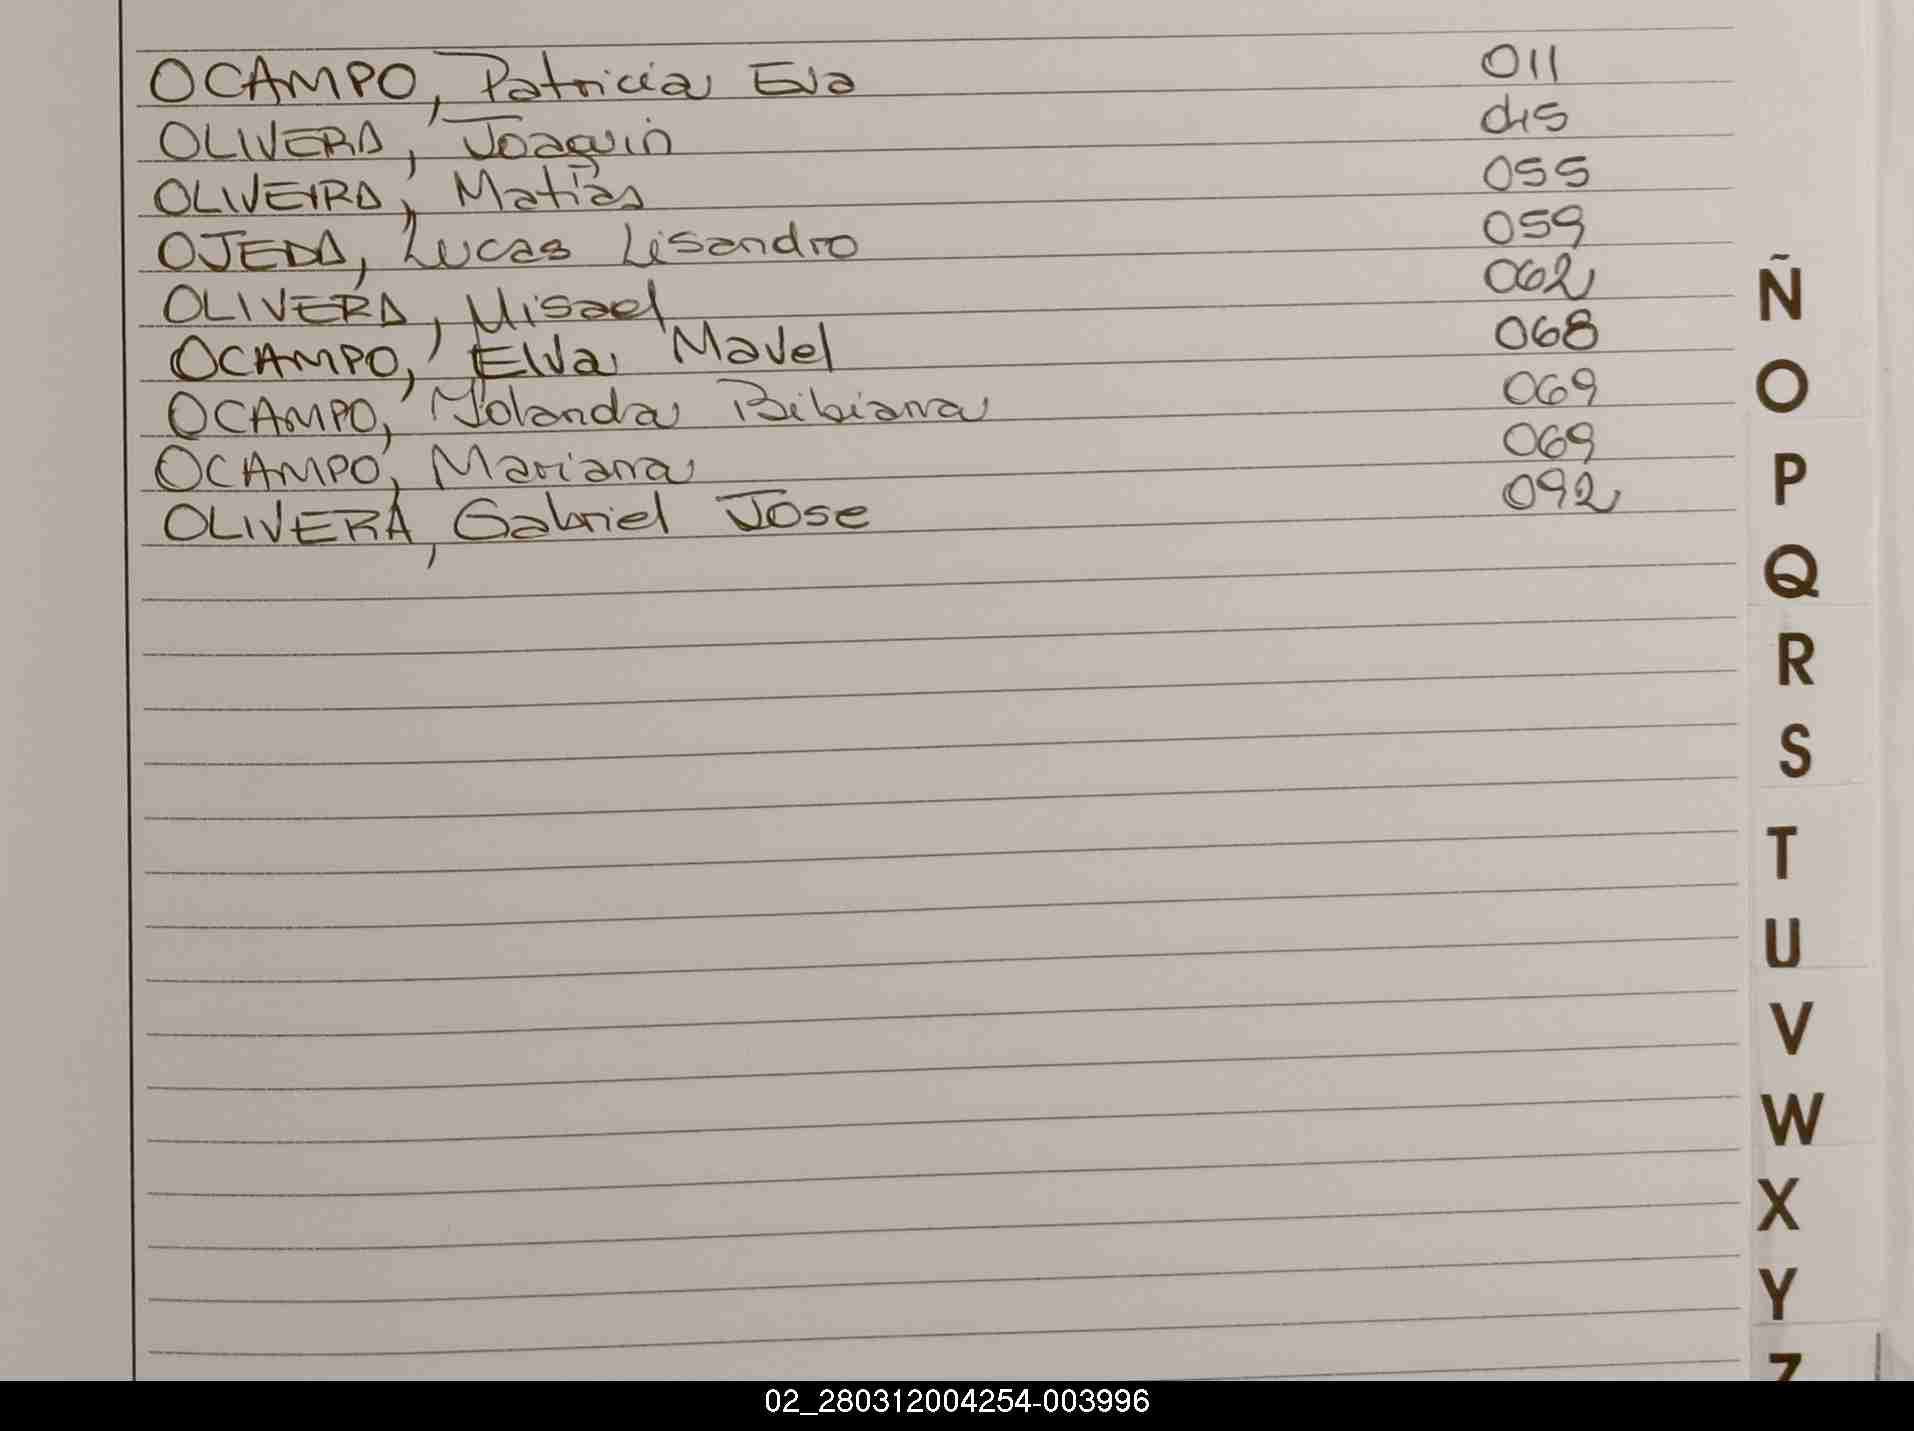 OCAMPO, Patricia Eva 011
OLIVERA, Joaquin 045
OLIVEIRA, Matias 055
OJEDA, Lucas Lisandro 059
OLIVERA, Misael 062
OCAMPO, Elva Mavel 068
OCAMPO, Yolanda Bibiana 069
OCAMPO, Mariana 069
OLIVERA, Gabriel Jose 092
Ñ
O
P
Q
R
S
T
U
V
W
X
Y
Z
02_280312004254-003996